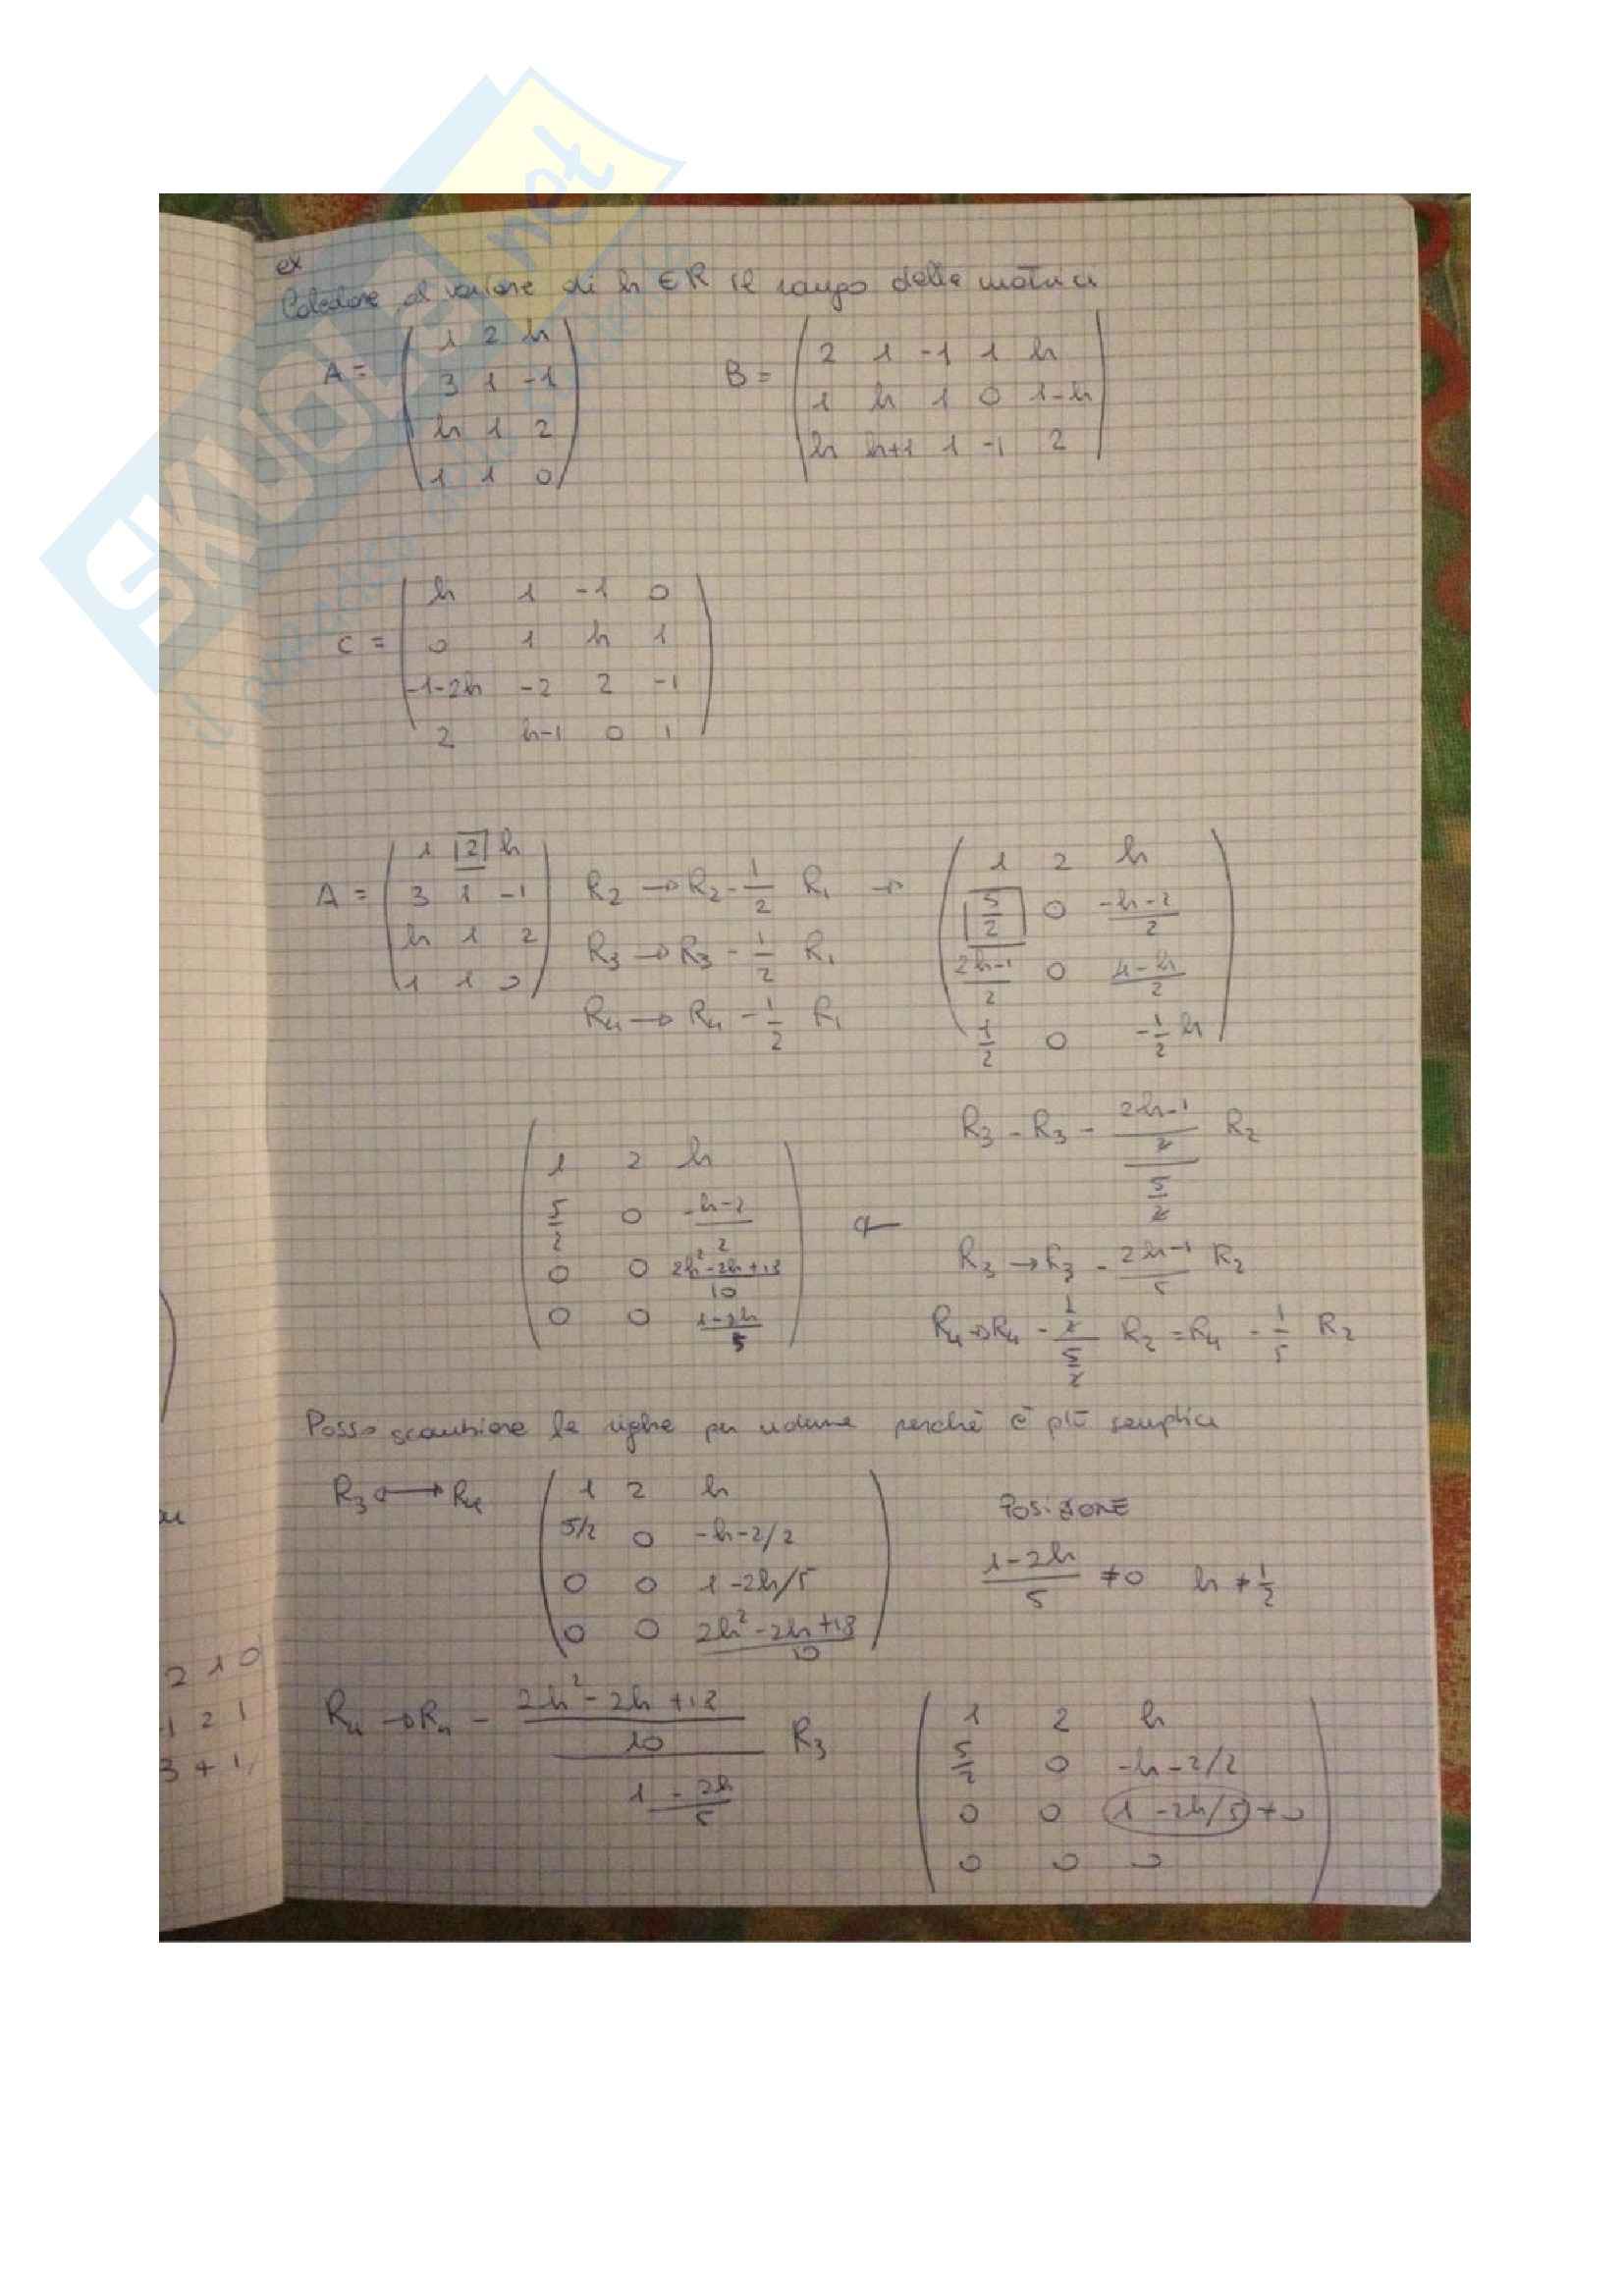 ex
Calcolare al variare di h ∈ R il rango delle matrici
A = ( 1 2 h
3 1 -1
h 1 2
1 1 0 )
B = ( 2 1 -1 1 h
1 h 1 0 1-h
h h+1 1 -1 2 )
C = ( h 1 -1 0
0 1 h 1
-1-2h -2 2 -1
2 h-1 0 1 )
A = ( 1 2 h
3 1 -1
h 1 2
1 1 0 )
R2 → R2 - 1/2 R1 →
R3 → R3 - 1/2 R1
R4 → R4 - 1/2 R1
( 1 2 h
5/2 0 -h-2/2
2h-1/2 0 4-h/2
1/2 0 -1/2 h )
R3 - R3 - 2h-1/2 / 5/2 R2
R3 → R3 - 2h-1/5 R2
R4 → R4 - 1/2 / 5/2 R2 = R4 - 1/5 R2
←
( 1 2 h
5/2 0 -h-2/2
0 0 2h²-2h+18/10
0 0 1-2h/5 )
Posso scambiare le righe per ridurre perchè è più semplice
R3 ↔ R4
( 1 2 h
5/2 0 -h-2/2
0 0 1-2h/5
0 0 2h²-2h+18/10 )
POSIZIONE
1-2h/5 ≠0 h ≠ 1/2
R4 → R4 - 2h²-2h+18/10 / 1-2h/5 R3
( 1 2 h
5/2 0 -h-2/2
0 0 1-2h/5 ≠0
0 0 0 )
2 1 0
-1 2 1
3 + 1,
SKUOLA
net